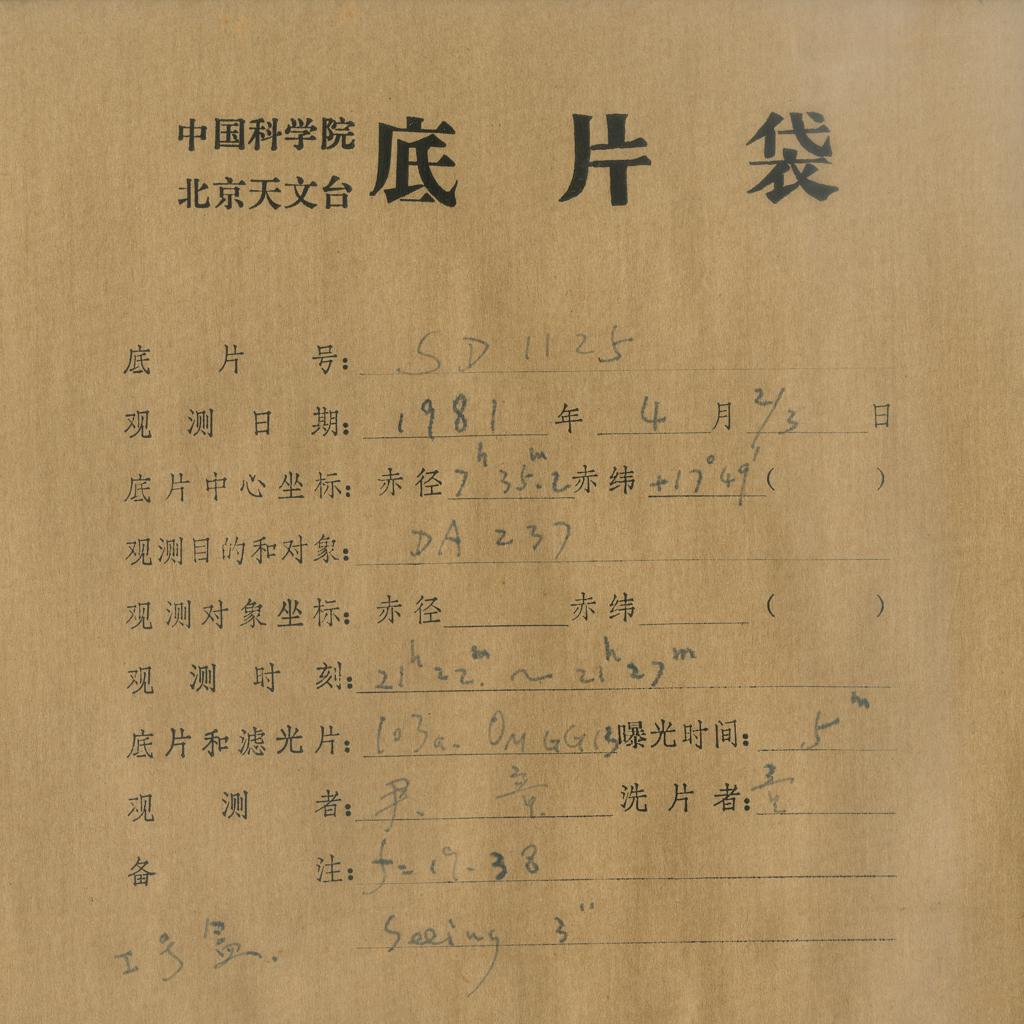 中国科学院
北京天文台 底片袋
底片号: SD 1125
观测日期: 1981 年 4 月 2/3 日
底片中心坐标: 赤径 7h 35m.2 赤纬 +17°49′ ( )
观测目的和对象: DA 237
观测对象坐标: 赤径 赤纬 ( )
观测时刻: 21h 22m. ~ 21h 27m
底片和滤光片: 103a-O GG13 曝光时间: 5m
观测者: 洗片者:
备注: f=19.38
Seeing 3″
工号